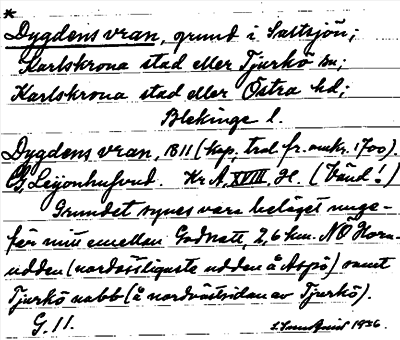 *
Dygdens vran, grund i Saltsjön;
Karlskrona stad eller Tjurkö sn;
Karlskrona stad eller Östra hd;
Blekinge l.
Dygdens vran, 1811 (kop, trol. fr. omkr. 1700).
G. Leijonhufvud. Kr A, XVIII, H. (Vänd!)
Grundet synes vara beläget unge-
fär mitt emellan Godnatt, 2,6 km. NÖ Horn-
udden (nordöstligaste udden å Aspö) samt
Tjurkö nabb (å nordvästsidan av Tjurkö).
G. 11.
1936.